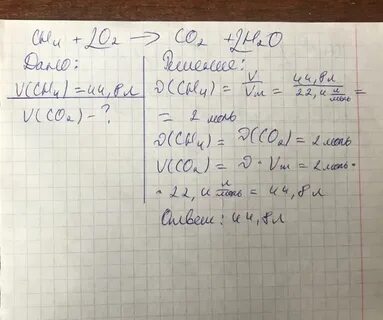 CH4 + 2O2 → CO2 + 2H2O
Дано:
V(CH4) = 44,8 л
V(CO2) - ?
Решение:
ν(CH4) = V/Vm = 44,8 л / 22,4 л/моль =
= 2 моль
ν(CH4) = ν(CO2) = 2 моль
V(CO2) = ν · Vm = 2 моль ·
· 22,4 л/моль = 44,8 л
Ответ: 44,8 л